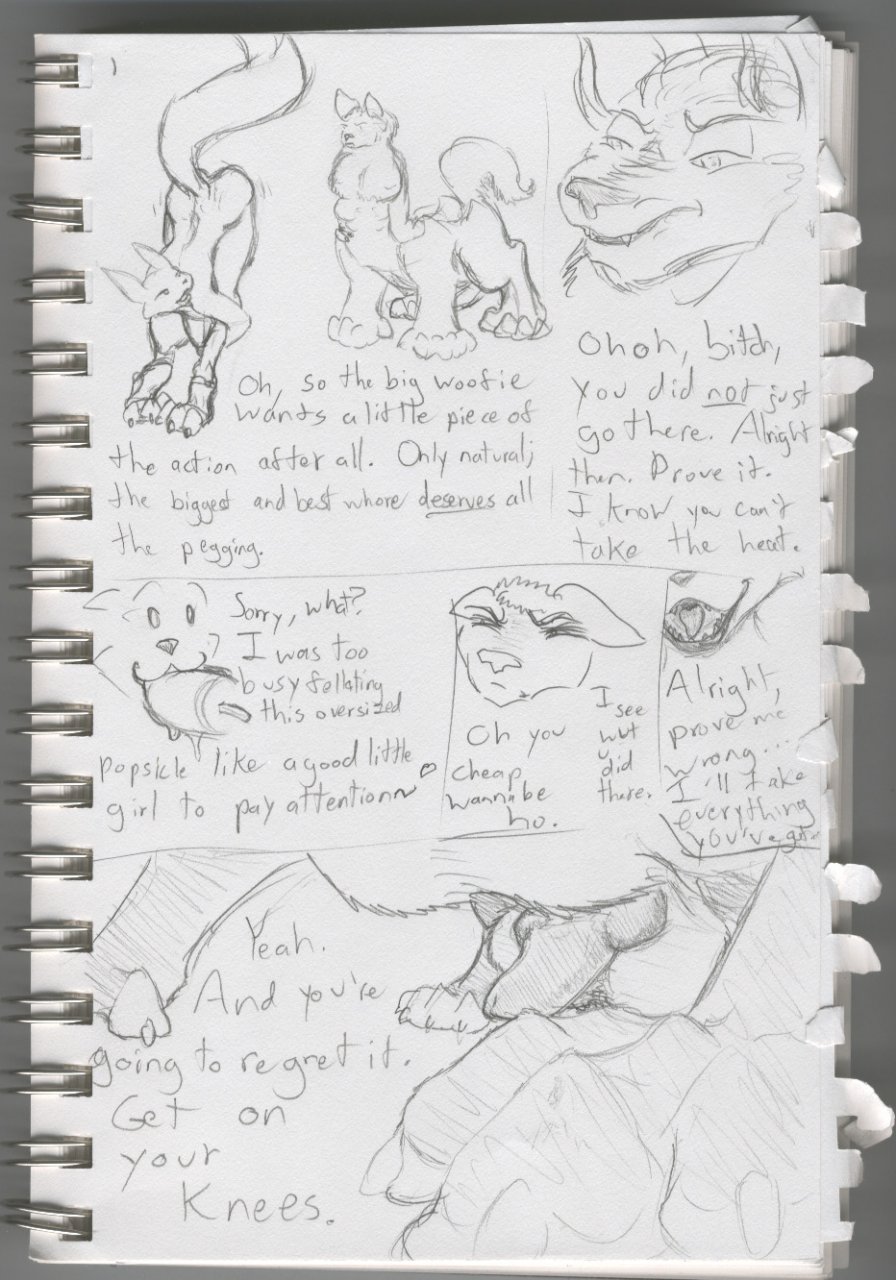 Oh, so the big woofie
wants a little piece of
the action after all. Only natural;
the biggest and best whore deserves all
the pegging.
Ohoh, bitch,
you did not just
go there. Alright
then. Prove it.
I know you can't
take the heat.
Sorry, what?
I was too
busy fellating
this oversized
popsicle like a good little
girl to pay attention~♡
Oh you
cheap
wannabe
ho.
I
see
wut
u
did
there.
Alright,
prove me
wrong...
I'll take
everything
you've got
Yeah.
And you're
going to regret it.
Get on
your
knees.